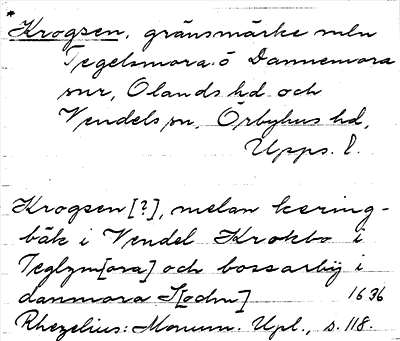 *
Krogsen, gränsmärke mln
Tegelsmora o Dannemora
snr, Olands hd och
Vendels sn, Örbyhus hd,
Upps. l.
Krogsen [?], melan kering-
bäk i Vendel Krokbo i
Teglzm[ora] och bossarbÿ i
danmora S[ochn] 1636
Rhezelius: Monum. Upl., s. 118.